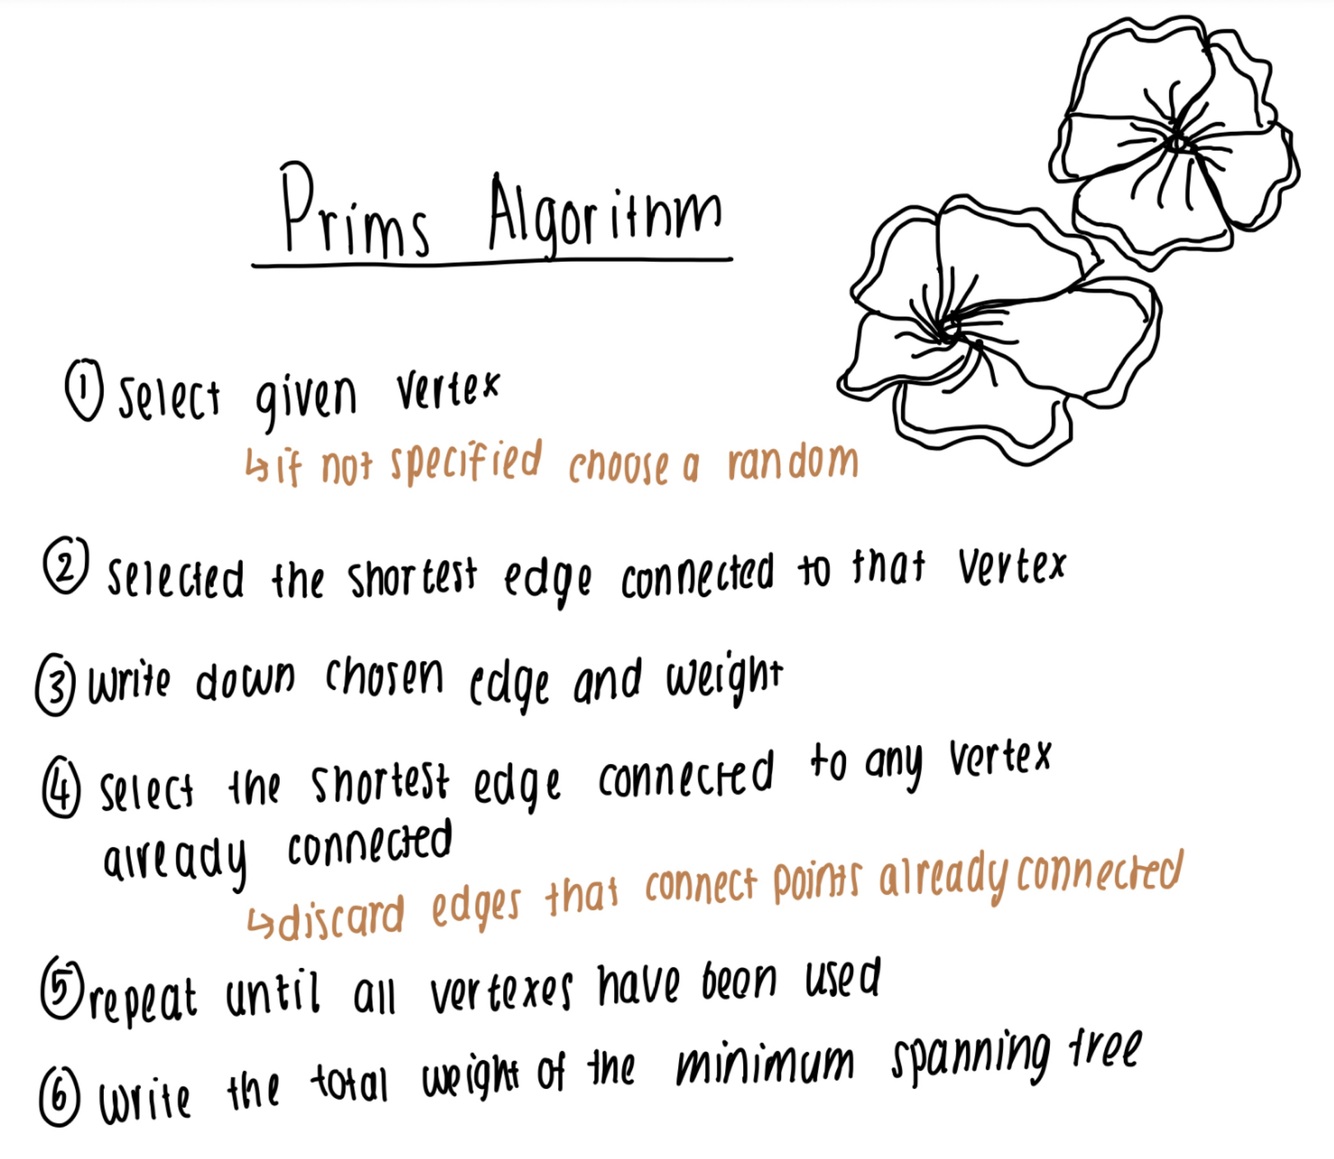 Prims Algorithm
① select given vertex
↳if not specified choose a random
② selected the shortest edge connected to that vertex
③ write down chosen edge and weight
④ select the shortest edge connected to any vertex
already connected
↳discard edges that connect points already connected
⑤ repeat until all vertexes have been used
⑥ write the total weight of the minimum spanning tree